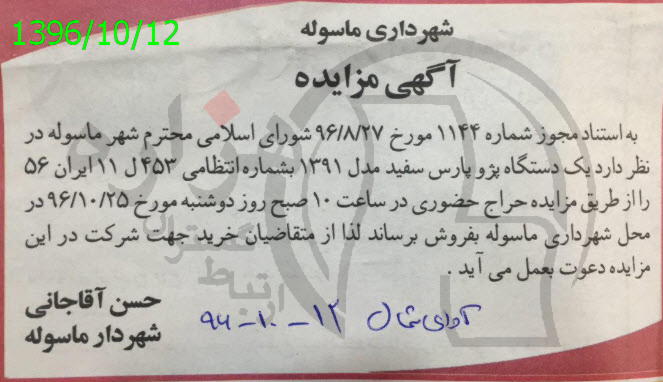 1396/10/12
شهرداری ماسوله
آگهی مزایده
به استناد مجوز شماره ۱۱۴۴ مورخ ۹۶/۸/۲۷ شورای اسلامی محترم شهر ماسوله در
نظر دارد یک دستگاه پژو پارس سفید مدل ۱۳۹۱ بشماره انتظامی ۴۵۳ ل ۱۱ ایران ۵۶
را از طریق مزایده حراج حضوری در ساعت ۱۰ صبح روز دوشنبه مورخ ۹۶/۱۰/۲۵ در
محل شهرداری ماسوله بفروش برساند لذا از متقاضیان خرید جهت شرکت در این
مزایده دعوت بعمل می آید .
حسن آقاجانی
شهردار ماسوله
آوای شمال ۱۲-۱۰-۹۶
ارتباط